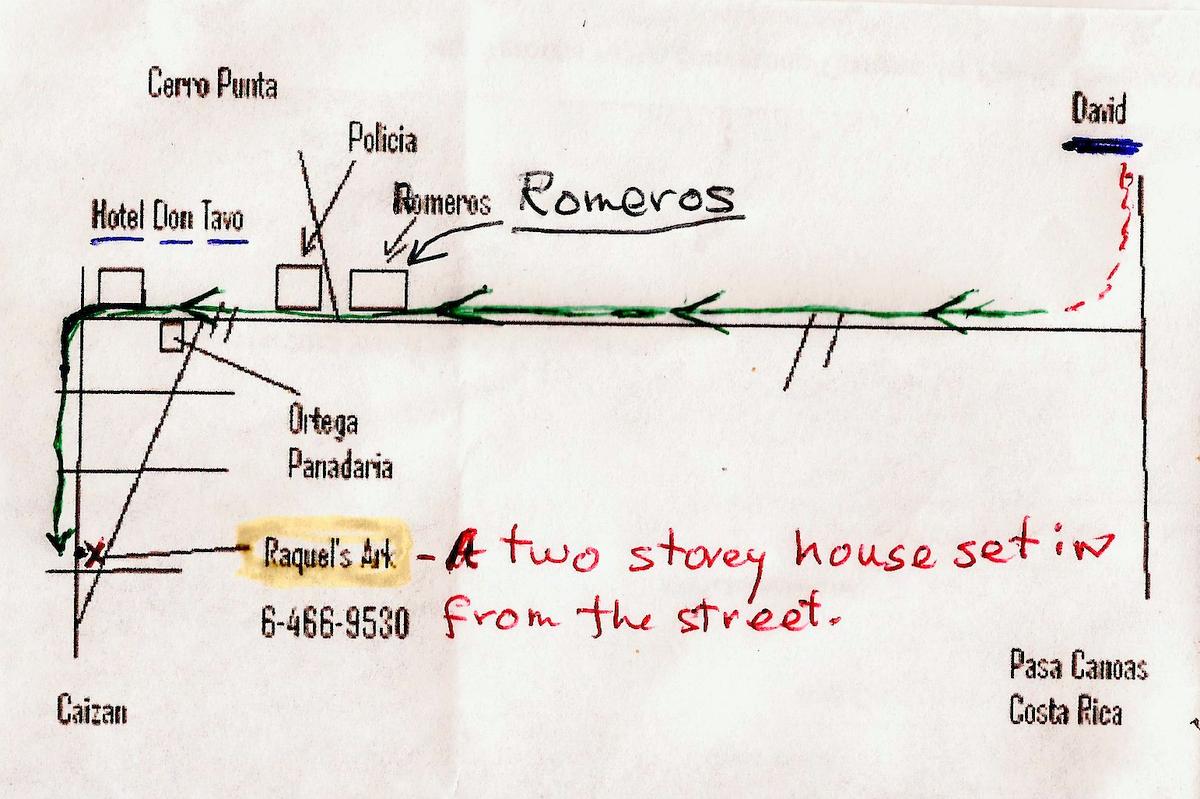 Cerro Punta
David
Policia
Romeros
Romeros
Hotel Don Tavo
Ortega
Panadaria
Raquel's Ark - A two storey house set in
from the street.
6-466-9530
Pasa Canoas
Costa Rica
Caizan